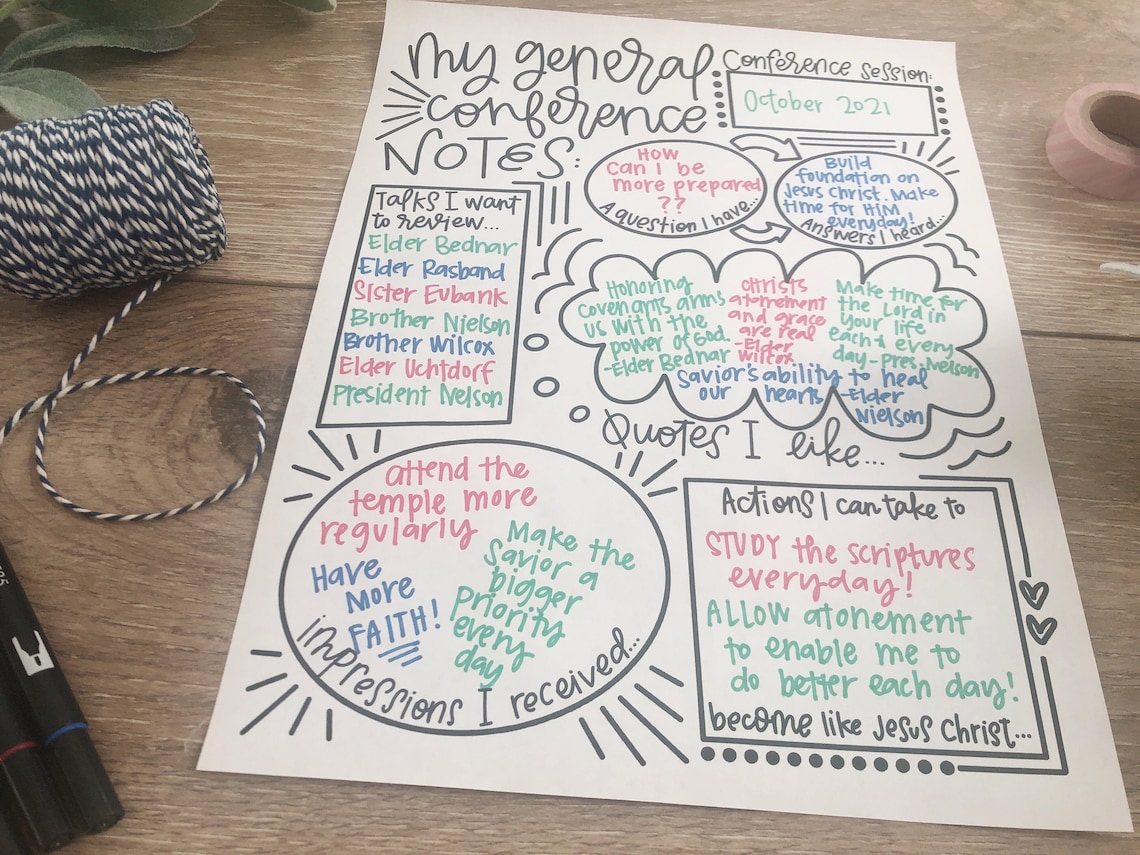 my general
conference
NOTES:
Conference session:
October 2021
Talks I want
to review...
Elder Bednar
Elder Rasband
Sister Eubank
Brother Nielson
Brother Wilcox
Elder Uchtdorf
President Nelson
How
can I be
more prepared
??
A question I have...
Build
foundation on
Jesus Christ. Make
time for HIM
everyday!
Answers I heard...
Honoring
covenants arms
us with the
power of God.
-Elder Bednar
Christs
atonement
and grace
are real
-Elder
Wilcox
Make time for
the Lord in
your life
each & every
day-pres. Nelson
Savior's ability to heal
our hearts -Elder
Nielson
Quotes I like...
attend the
temple more
regularly
Have
More
FAITH!
Make the
Savior a
bigger
Priority
every
day
impressions I received...
Actions I can take to
STUDY the scriptures
everyday!
ALLOW atonement
to enable me to
do better each day!
become like Jesus Christ...